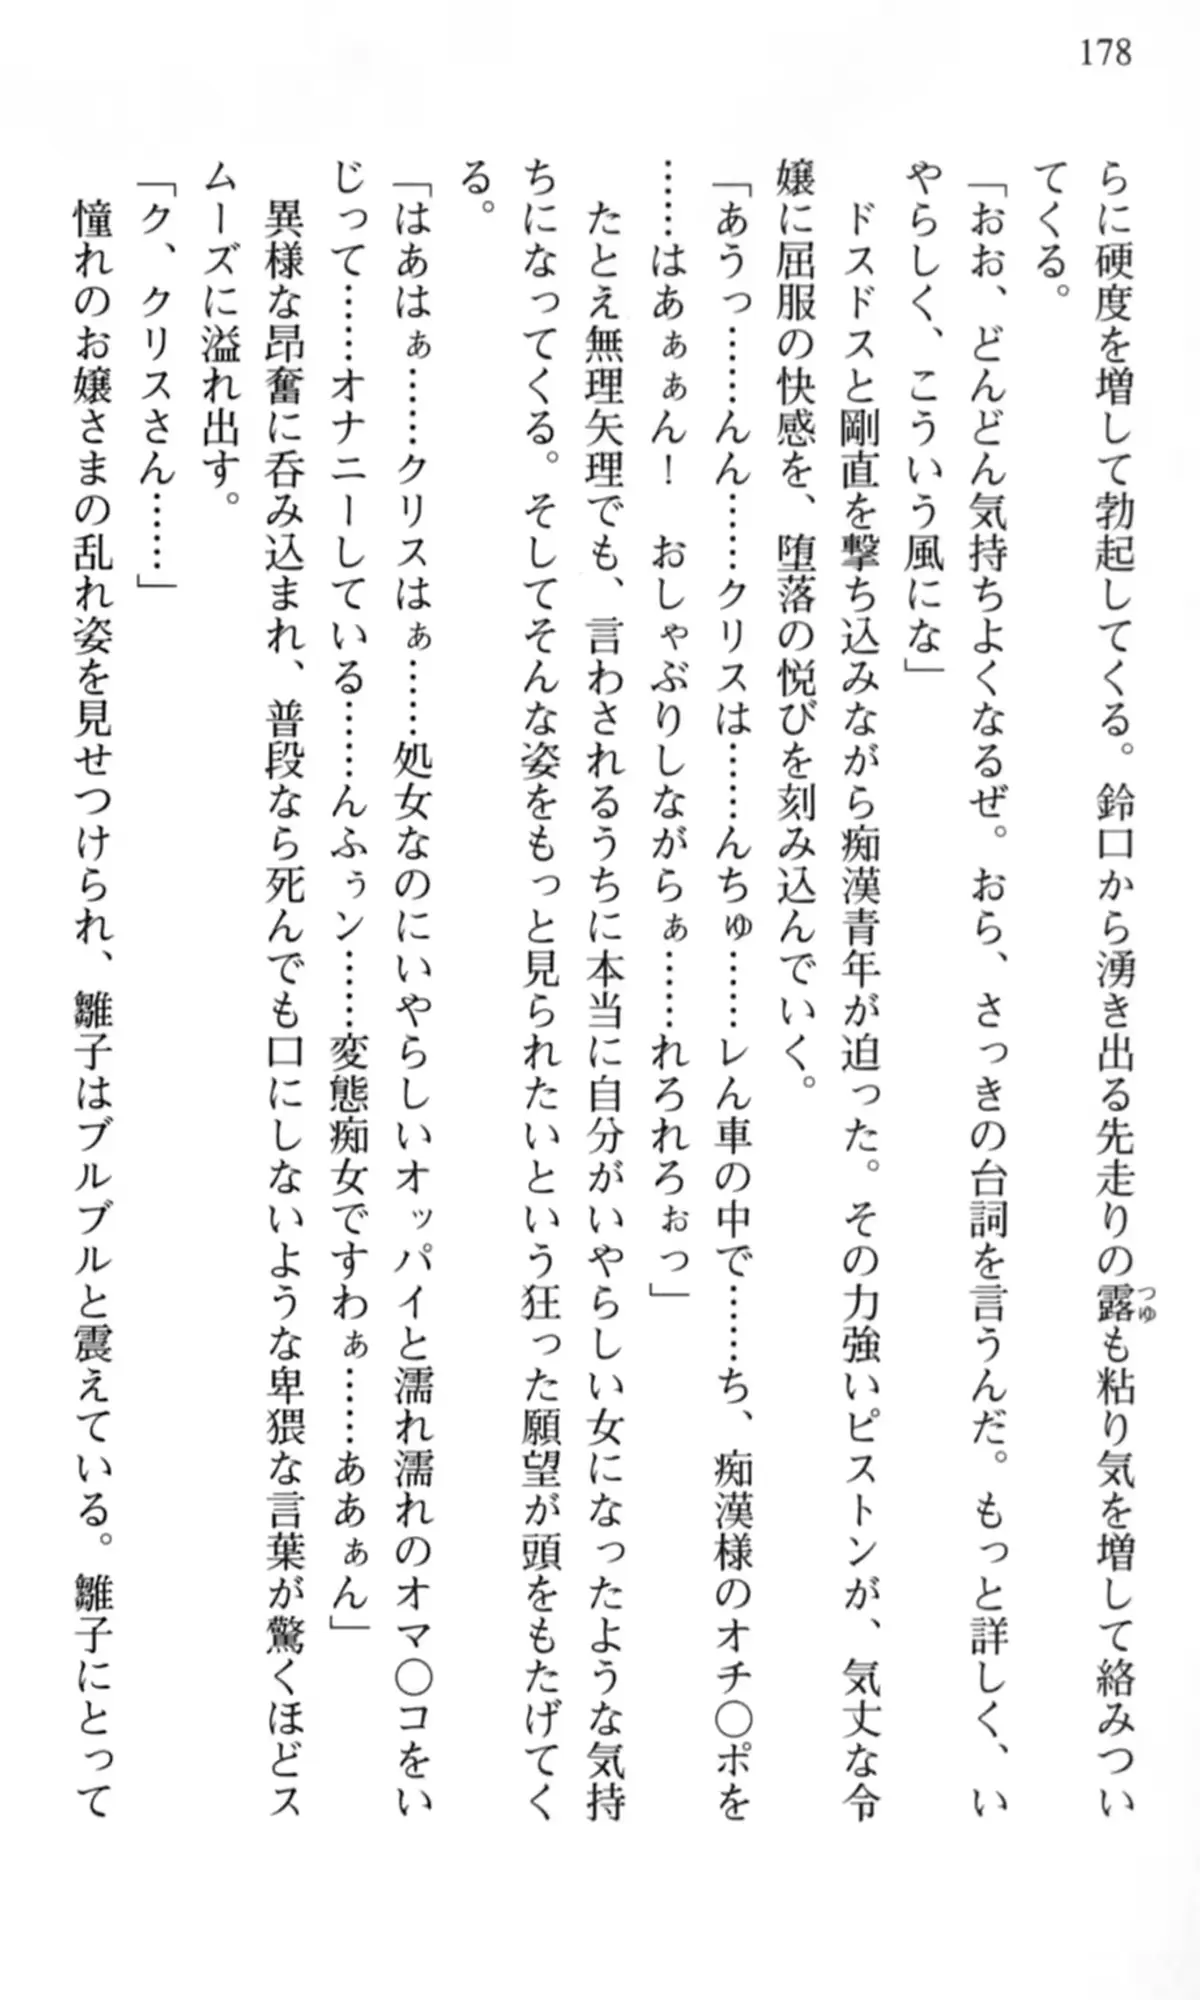 178
らに硬度を増して勃起してくる。鈴口から湧き出る先走りの露も粘り気を増して絡みつい
つゆ
てくる。
「おお、どんどん気持ちよくなるぜ。おら、さっきの台詞を言うんだ。もっと詳しく、い
やらしく、こういう風にな」
ドスドスと剛直を撃ち込みながら痴漢青年が迫った。その力強いピストンが、気丈な令
嬢に屈服の快感を、堕落の悦びを刻み込んでいく。
「あうっ……んん……クリスは……んちゅ……レん車の中で……ち、痴漢様のオチ〇ポを
……はあぁぁん！　おしゃぶりしながらぁ……れろれろぉっ」
たとえ無理矢理でも、言わされるうちに本当に自分がいやらしい女になったような気持
ちになってくる。そしてそんな姿をもっと見られたいという狂った願望が頭をもたげてく
る。
「はあはぁ……クリスはぁ……処女なのにいやらしいオッパイと濡れ濡れのオマ〇コをい
じって……オナニーしている……んふぅン……変態痴女ですわぁ……ああぁん」
異様な昂奮に呑み込まれ、普段なら死んでも口にしないような卑猥な言葉が驚くほどス
ムーズに溢れ出す。
「ク、クリスさん……」
憧れのお嬢さまの乱れ姿を見せつけられ、雛子はブルブルと震えている。雛子にとって